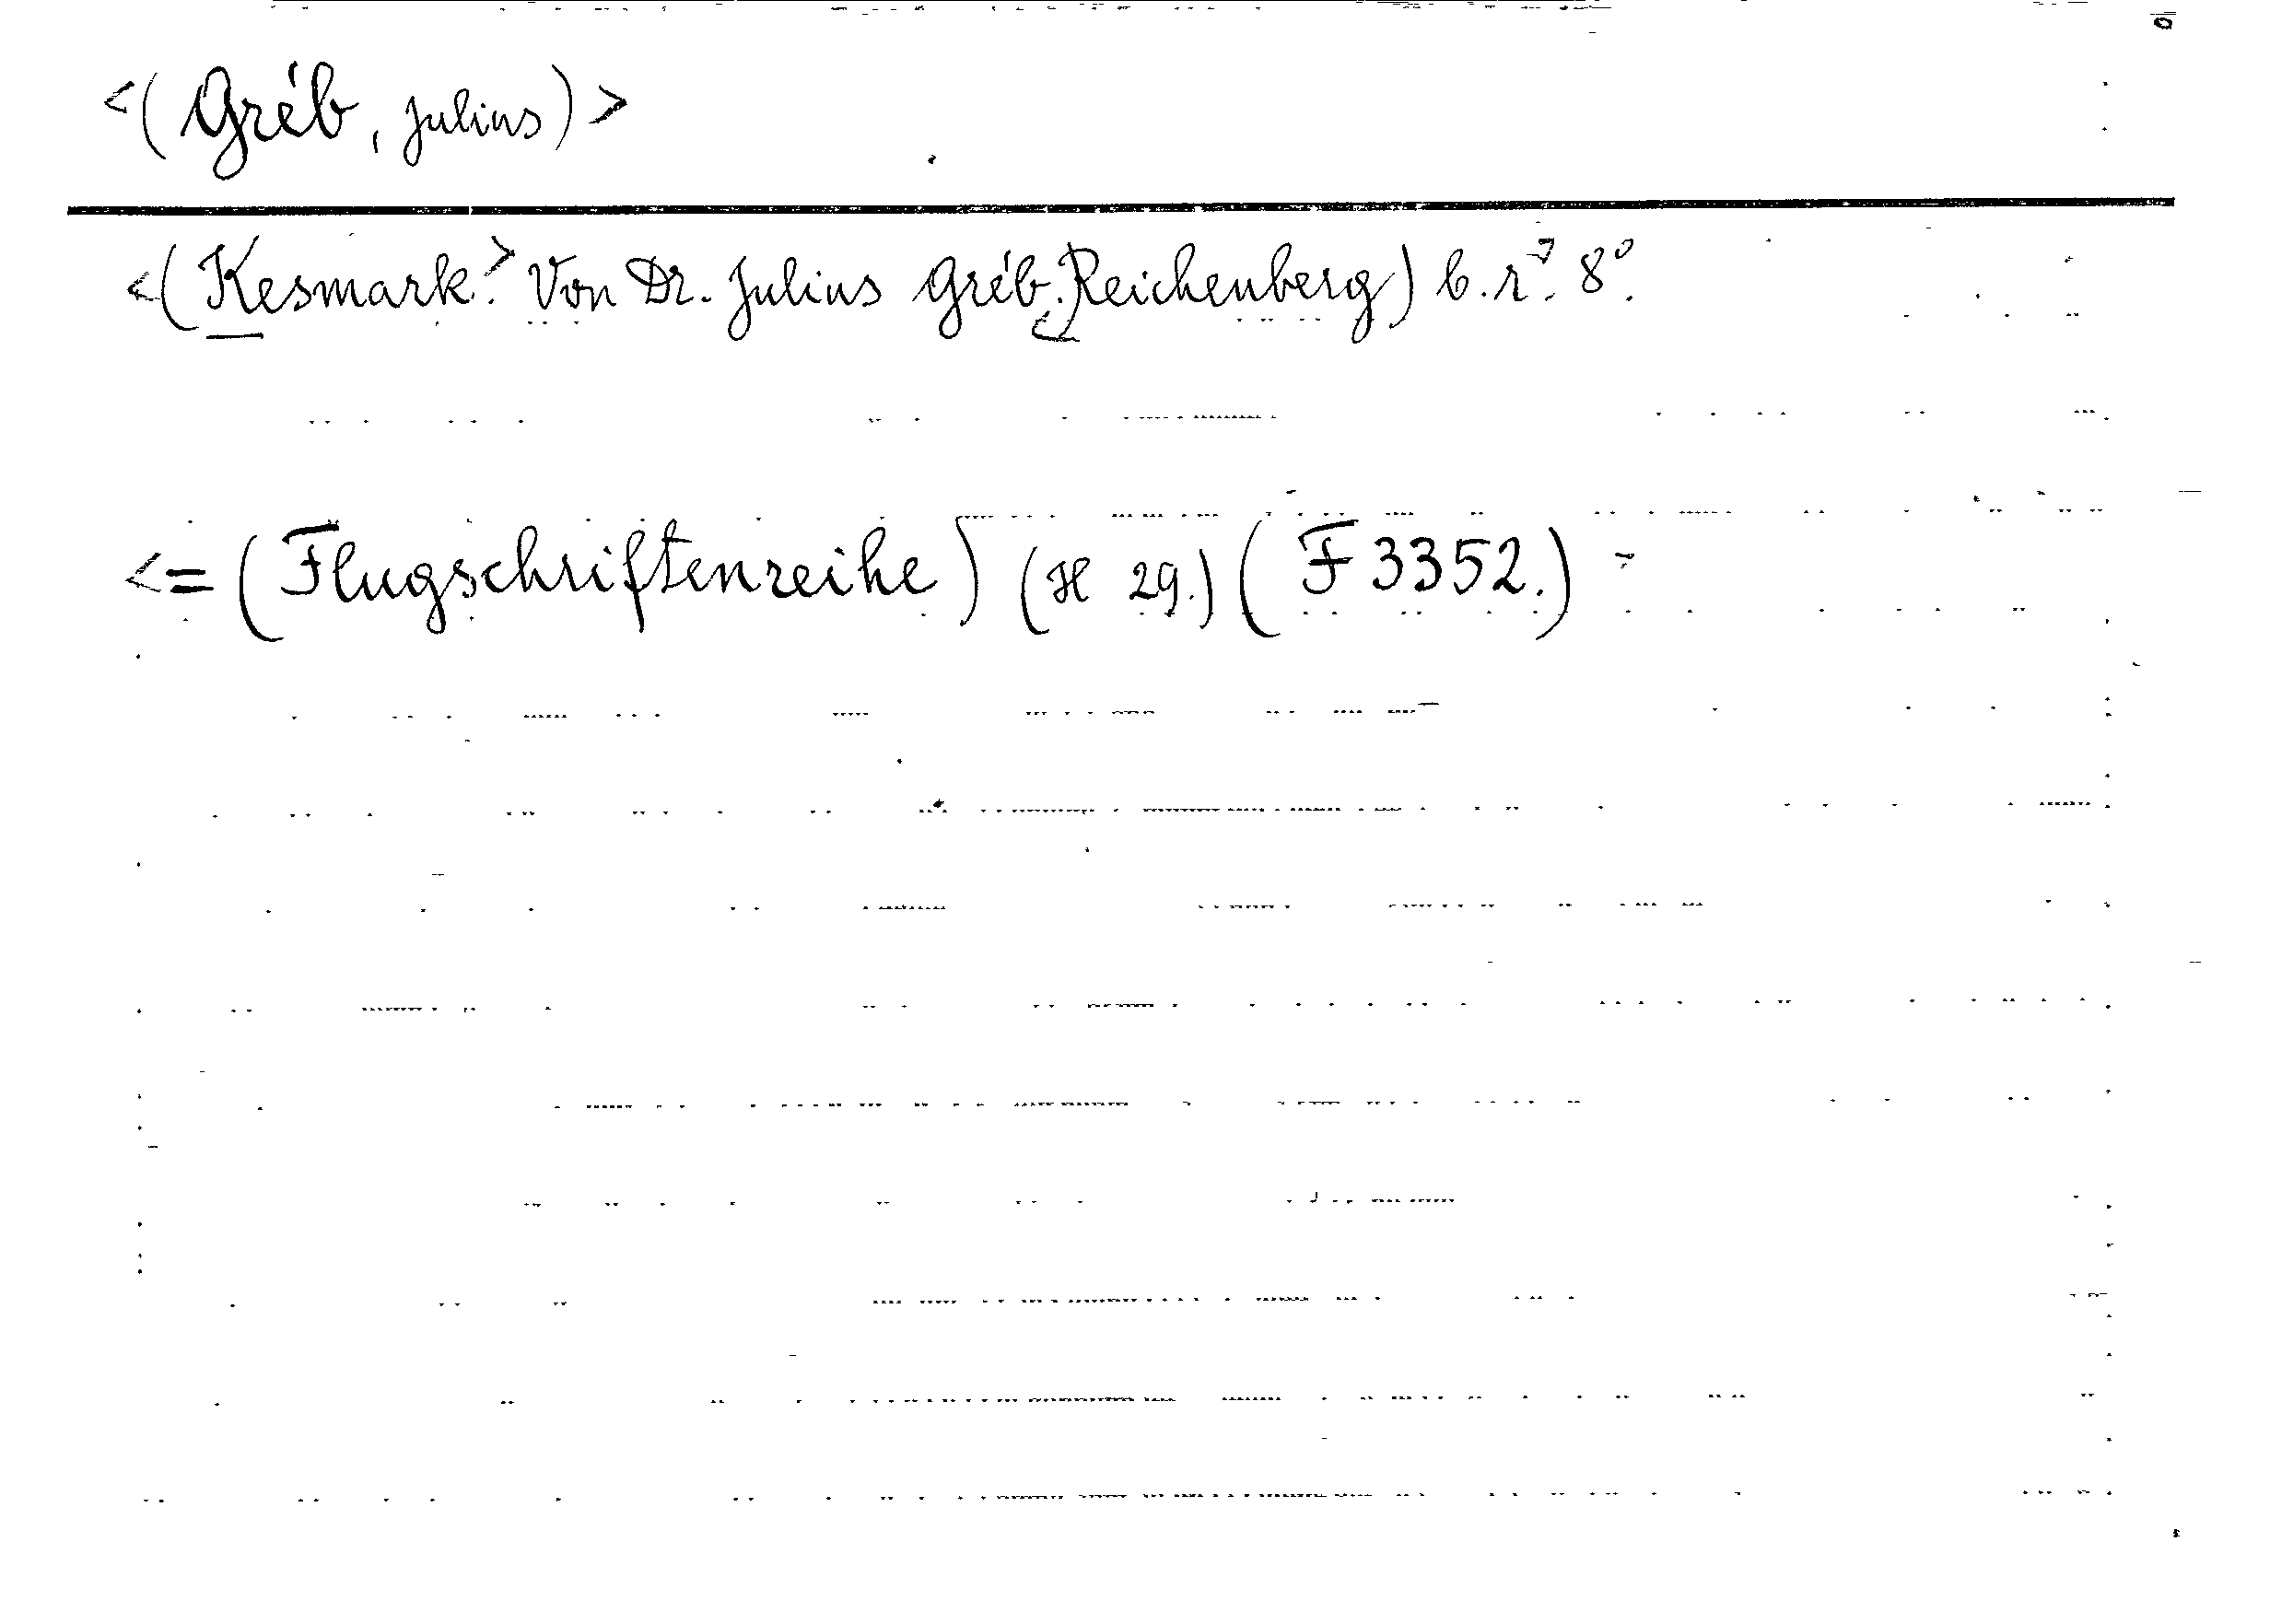 <(Gréb, Julius)>
<(Kesmark.> Von Dr. Julius Gréb. <Reichenberg) b. r.> 8°.
<=(Flugschriftenreihe) (H 29.) (F 3352.)>